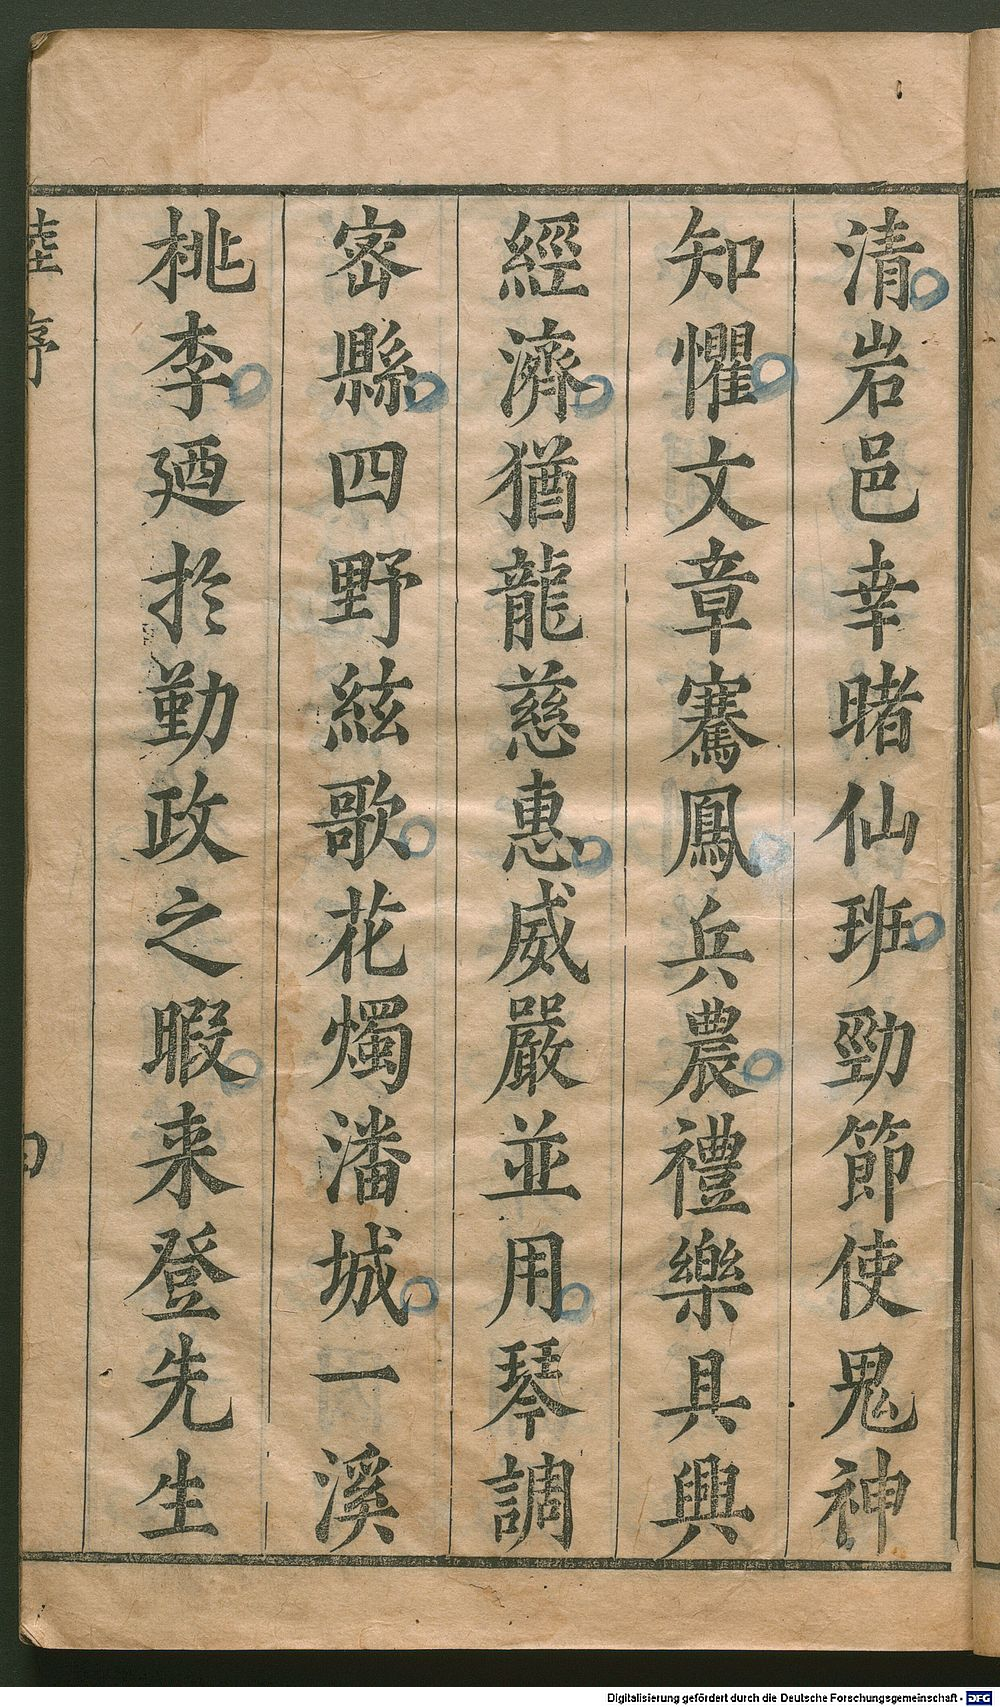 清岩邑幸睹仙班勁節使鬼神
知懼文章騫鳳兵農禮樂具興
經濟猶龍慈惠威嚴並用琴調
宻縣四野絃歌花燭潘城一溪
桃李廼於勤政之暇来登先生
陸序
Digitalisierung gefördert durch die Deutsche Forschungsgemeinschaft - DFG